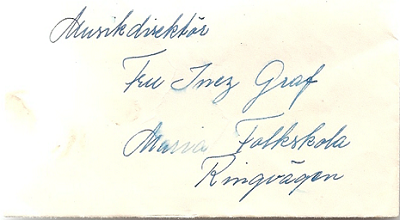 Musikdirektör
Fru Inez Graf
Maria Folkskola
Ringvägen